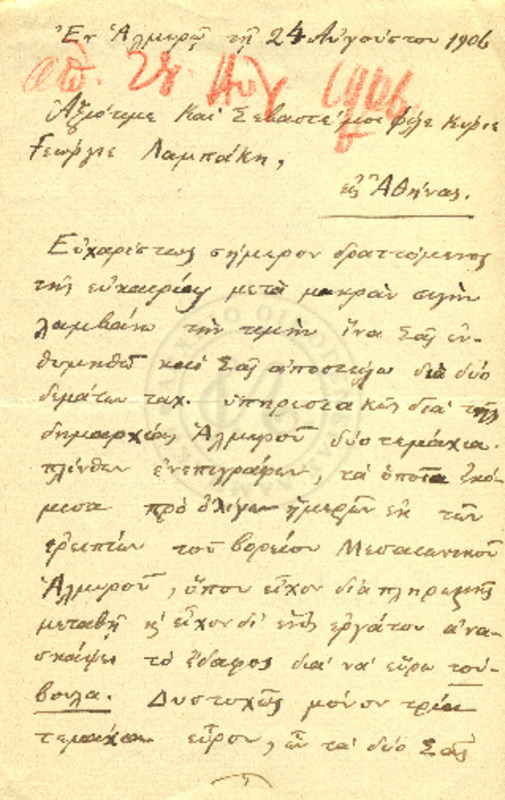 Ἐν Ἁλμυρῷ τῇ 24 Αὐγούστου 1906
ἀπ. 28 Αὐγ 1906
Ἀξιότιμε καὶ Σεβαστέ μοι φίλε Κύριε
Γεώργιε Λαμπάκη,
εἰς Ἀθήνας.
Εὐχαρίστως σήμερον δραττόμενος
τῆς εὐκαιρίας μετὰ μακρὰν σιγὴν
λαμβάνω τὴν τιμὴν ἵνα Σᾶς ἐν-
θυμηθῶ καὶ Σᾶς ἀποστείλω διὰ δύο
δεμάτων ταχ. ὑπηρεσιακῶς διὰ τῆς
δημαρχίας Ἁλμυροῦ δύο τεμάχια
πλίνθων ἐνεπιγράφων, τὰ ὁποῖα ἐκό-
μισα πρὸ ὀλίγων ἡμερῶν ἐκ τῶν
ἐρειπίων τοῦ βορείου Μεσαιωνικοῦ
Ἁλμυροῦ, ὅπου εἶχον διὰ πληρωμῆς
μεταβῆ κ' εἶχον δι' ἑνὸς ἐργάτου ἀνα-
σκάψει τὸ ἔδαφος διὰ νὰ εὕρω τοῦ-
βουλα. Δυστυχῶς μόνον τρία
τεμάχια εὗρον, ὧν τὰ δύο Σᾶς